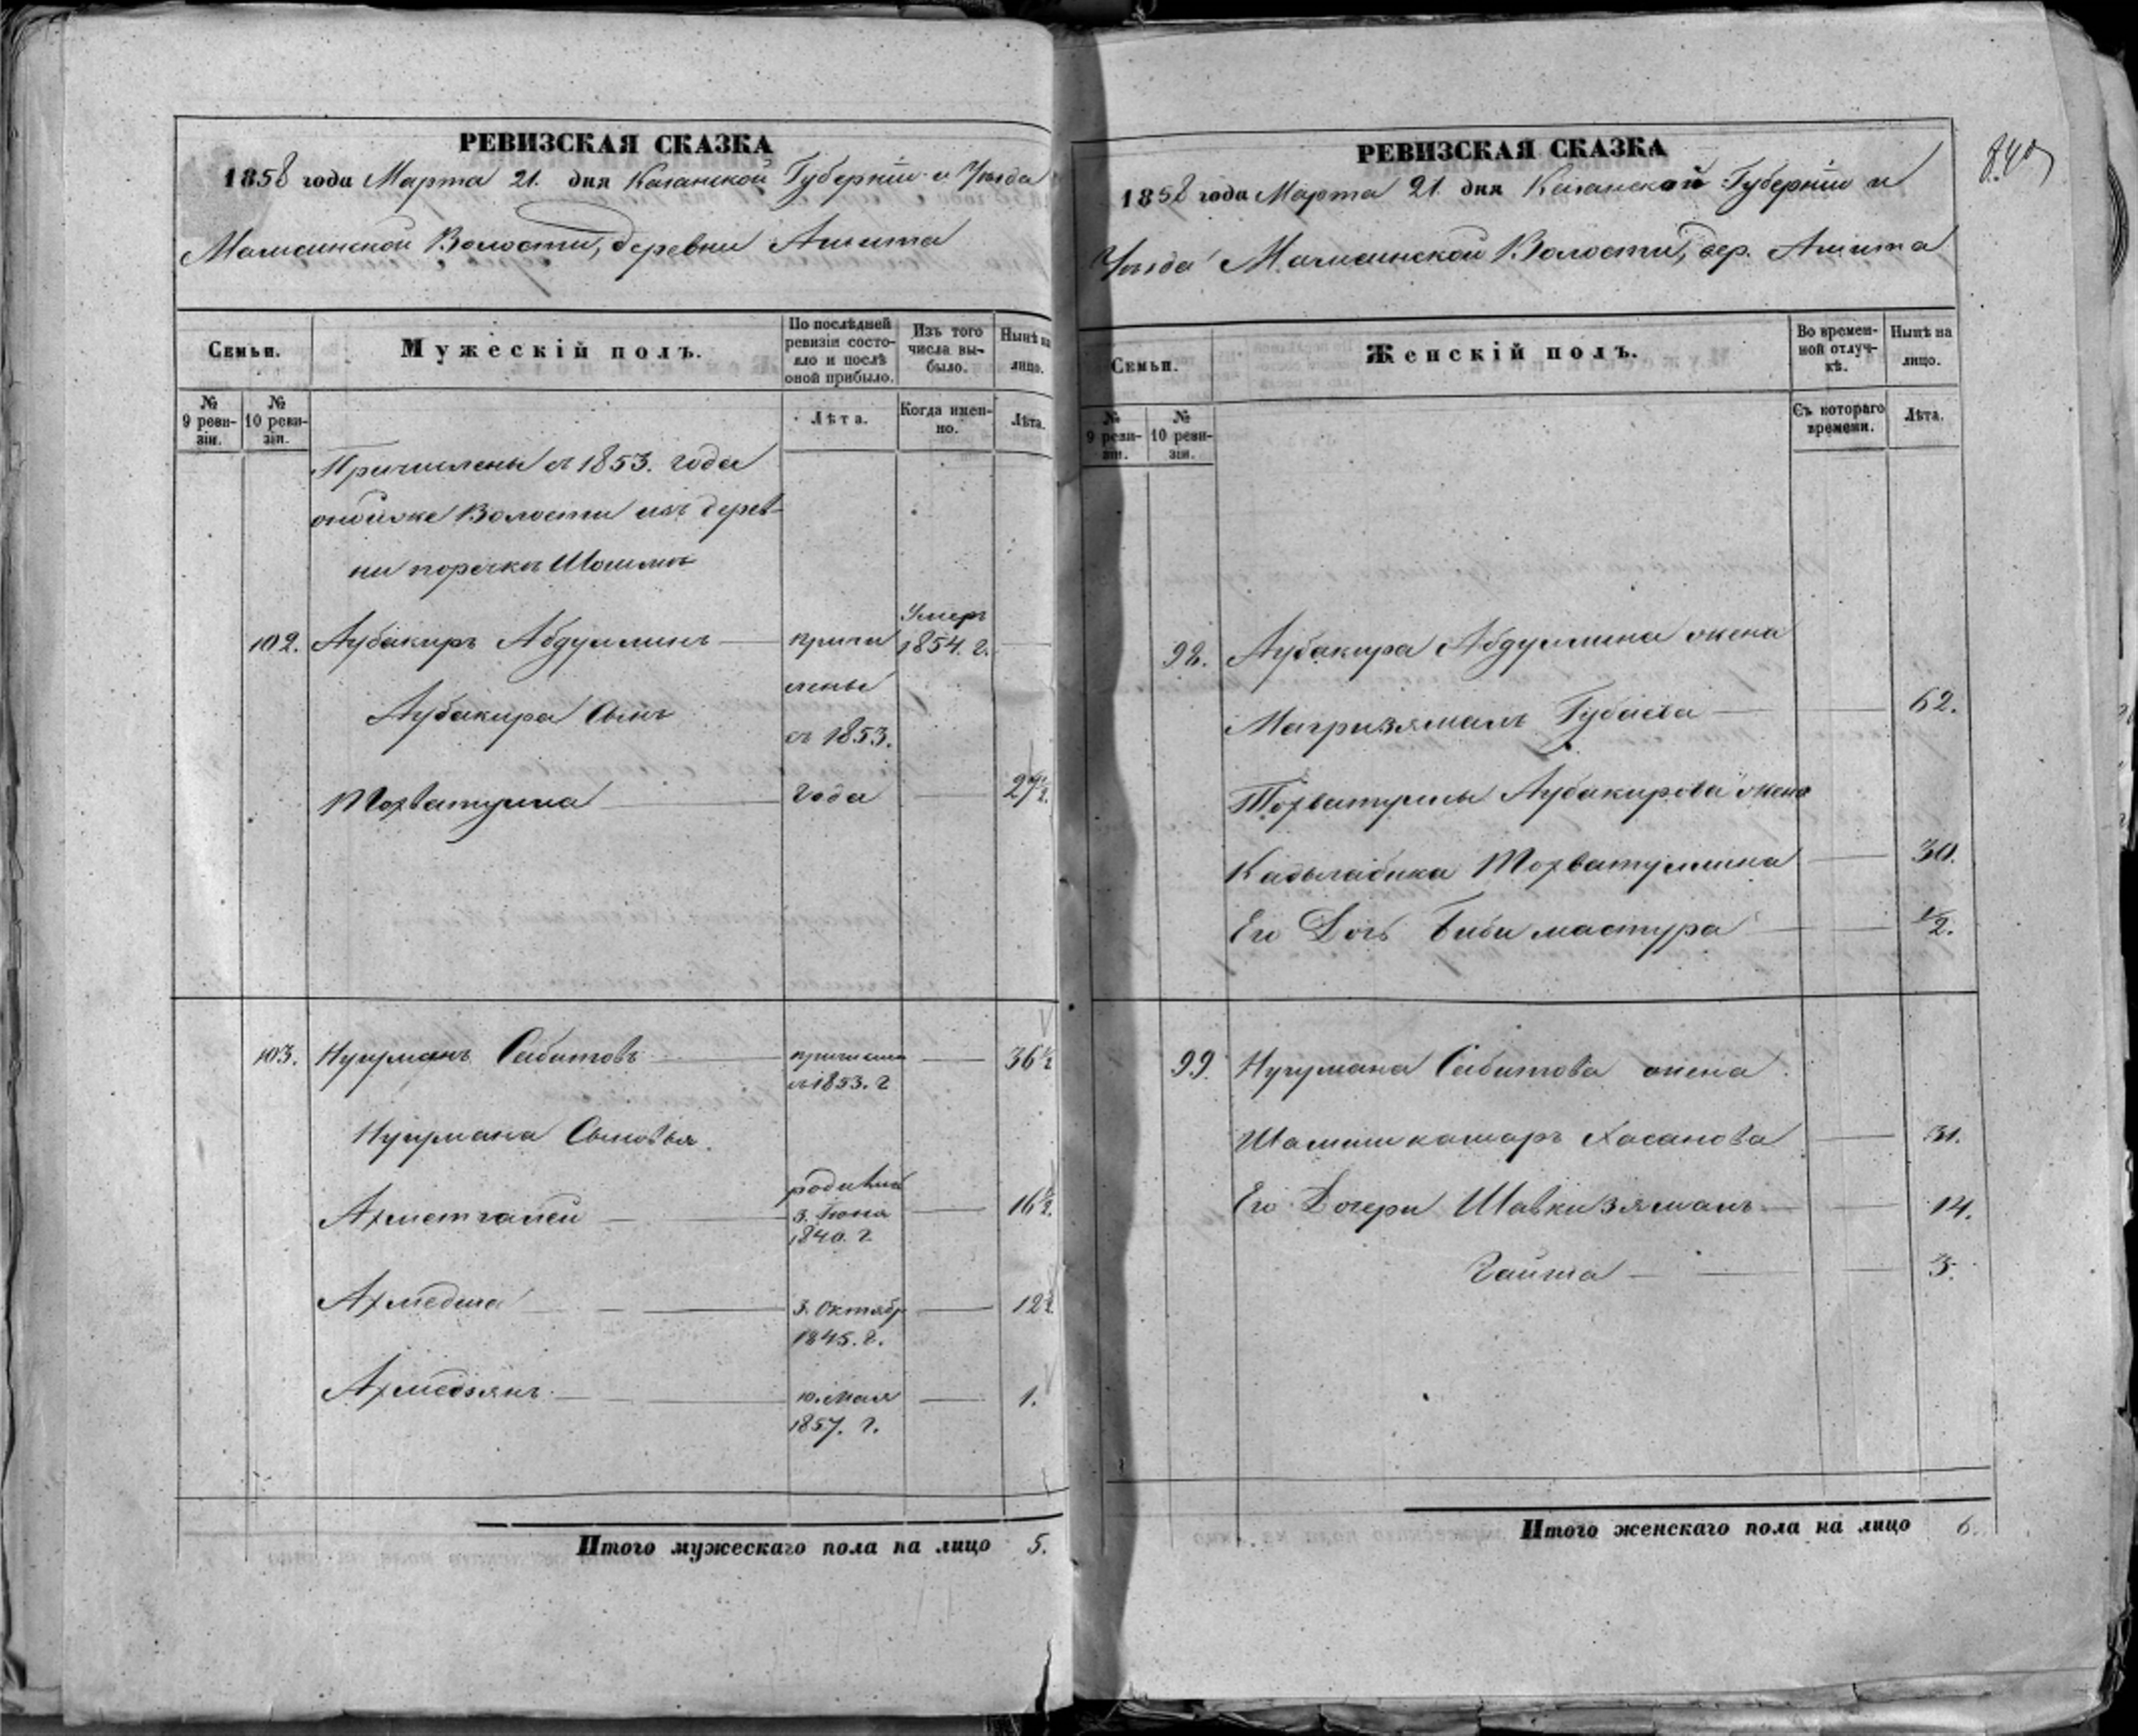 РЕВИЗСКАЯ СКАЗКА
1858 года Марта 21. дня Казанской Губерніи и Уѣзда
Мамсинской Волости, деревни Ашита
Семьи.
Мужескій полъ.
По послѣдней ревизіи состояло и послѣ оной прибыло.
Изъ того числа выбыло.
Нынѣ на лицо.
№ 9 ревизіи.
№ 10 ревизіи.
Лѣта.
Когда именно.
Лѣта.
Причислены съ 1853. года
оной же Волости изъ дерев-
ни
Умеръ
102. Аубакиръ Абдуллинъ причи 1854. г.
слены
Аубакира Сынъ
съ 1853.
Тохватулла года
103. Нугуманъ Сабитовъ 36 1/2
съ 1853. г
Нугумана Сыновья.
родивш
Ахметгалей 3. Іюня 16 1/2.
1840. г
Ахмедша 3. Октябр 12 1/2
1845. г.
Ахмедзянъ 10. Мая 1.
1857. г.
Итого мужескаго пола на лицо 5.
РЕВИЗСКАЯ СКАЗКА
1858 года Марта 21. дня Казанской Губерніи и
Уѣзда Мамсинской Волости, дер. Ашита
Семьи.
Женскій полъ.
Во временной отлучкѣ.
Нынѣ на лицо.
№ 9 ревизіи.
№ 10 ревизіи.
Съ котораго времени.
Лѣта.
98. Аубакира Абдуллина жена
Магризямалъ Губаева 62.
Тохватуллы Аубакирова жена
Кадылабика Тохватуллина 30.
Его Дочь Биби мастура 1/2.
99. Нугумана Сабитова жена
Шамшикамаръ Хасанова 31.
Его Дочери Шавкизямалъ 14.
Гайша 3.
Итого женскаго пола на лицо 6.